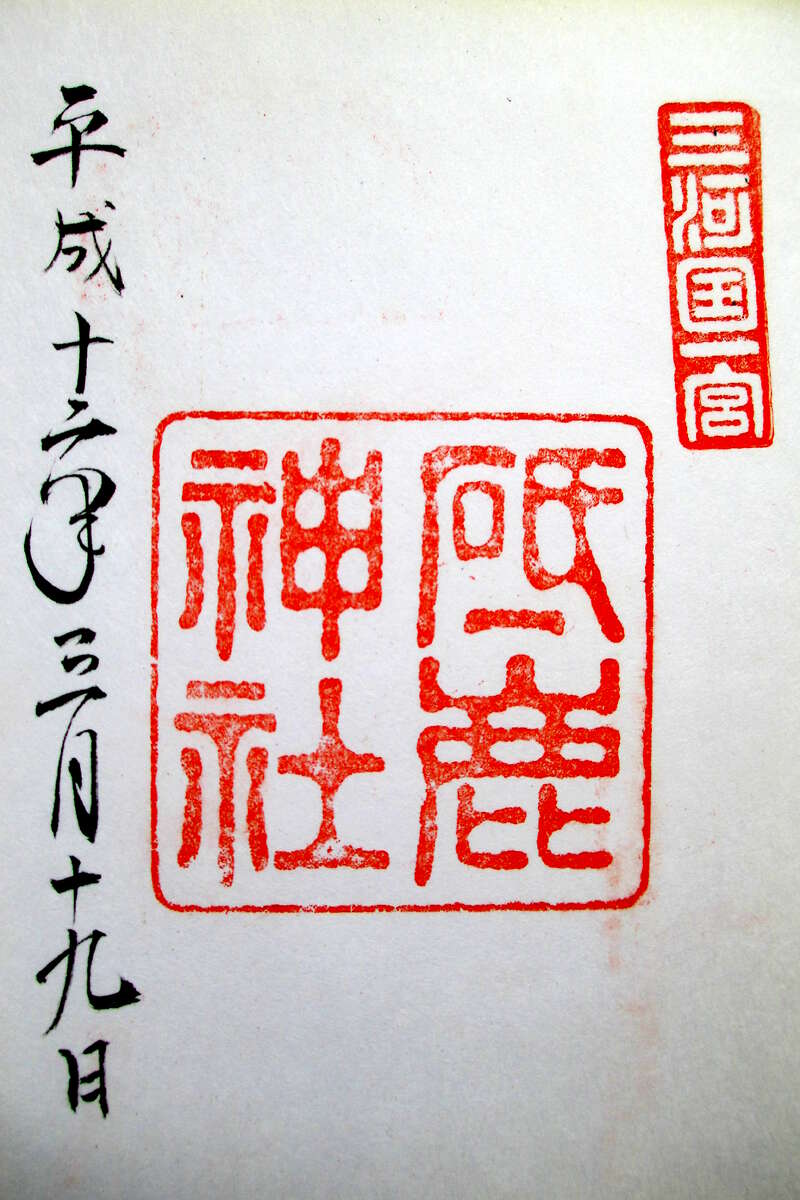 三河国一宮
砥鹿
神社
平成十二年三月十九日